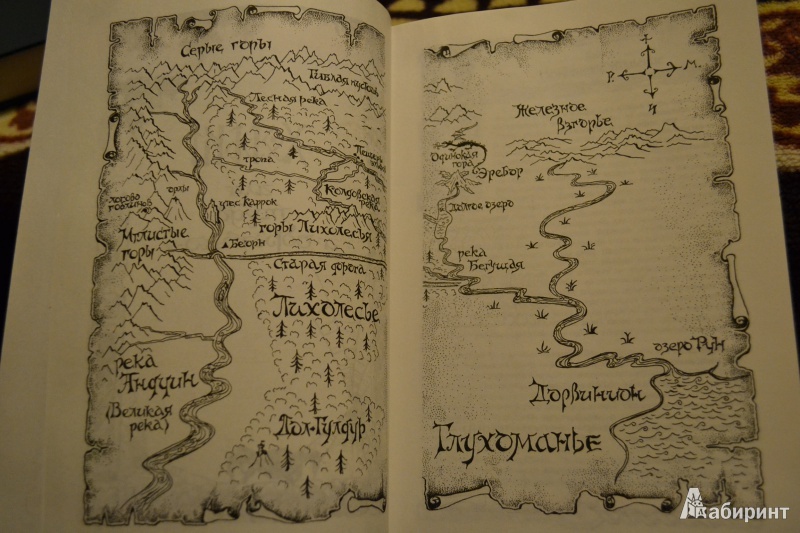 Серые горы
Гиблая пустошь
Лесная река
тропа
Колдовская
река
орлы
логово
гоблинов
утес Каррок
горы Лихолесья
Мглистые
горы
Беорн
Старая дорога
Лихолесье
река
Андуин
(Великая
река)
Дол-Гулдур
Железное
взгорье
Одинокая
гора
Эребор
Долгое озеро
река
Бегущая
озеро Рун
Дорвинион
Глухоманье
Лабиринт